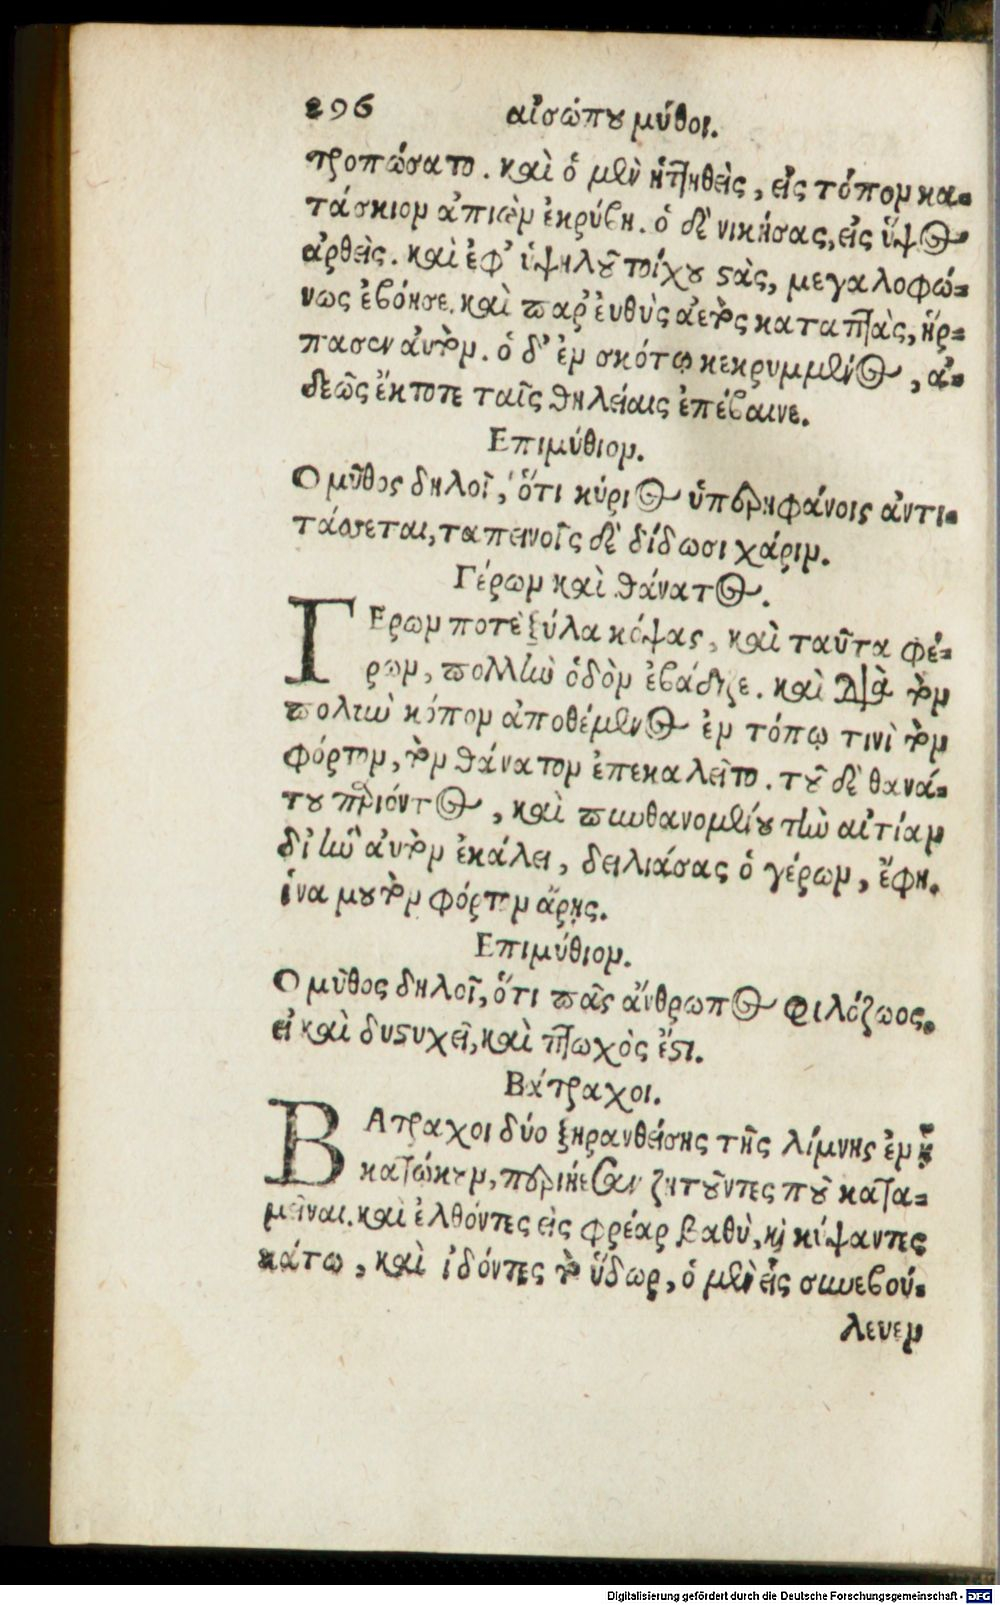 296 αἰσώπου μύθοι.
τροπώσατο. καὶ ὁ μὲν ἡττηθεὶς, εἰς τόπον κα-
τάσκιον ἀπιὼν ἐκρύβη. ὁ δὲ νικήσας, εἰς ὕψος
ἀρθεὶς. καὶ ἐφ' ὑψηλοῦ τοίχου στὰς, μεγαλοφώ-
νως ἐβόησε. καὶ παρ' ἐυθὺς ἀετὸς καταπτὰς, ἥρ-
πασεν ἀυτὸν. ὁ δ' ἐν σκότῳ κεκρυμμένος, ἀ-
δεῶς ἔκτοτε ταῖς θηλείαις ἐπέβαινε.
Επιμύθιον.
Ο μῦθος δηλοῖ, ὅτι κύριος ὑπερηφάνοις ἀντι-
τάσσεται, ταπεινοῖς δὲ δίδωσι χάριν.
Γέρων καὶ θάνατος.
ΓΕρων ποτὲ ξύλα κόψας, καὶ ταῦτα φέ-
ρων, πολλὴν ὁδὸν ἐβάδιζε. καὶ διὰ τὸν
πολὺν κόπον ἀποθέμενος ἐν τόπῳ τινὶ τὸν
φόρτον, τὸν θάνατον ἐπεκαλεῖτο. τοῦ δὲ θανά-
του παριόντος, καὶ πυνθανομένου τὴν αἰτίαν
δι' ἣν ἀυτὸν ἐκάλει, δειλιάσας ὁ γέρων, ἔφη.
ἵνα μου τὸν φόρτον ἄρῃς.
Επιμύθιον.
Ο μῦθος δηλοῖ, ὅτι πᾶς ἄνθρωπος φιλόζωος.
εἰ καὶ δυστυχεῖ, καὶ πτωχὸς ἔστι.
Βάτραχοι.
ΒΑτραχοι δύο ξηρανθείσης τῆς λίμνης ἐν ᾗ
κατῴκουν, περιῄεσαν ζητοῦντες ποῦ κατα-
μεῖναι. καὶ ἐλθόντες εἰς φρέαρ βαθὺ, καὶ κύψαντες
κάτω, καὶ ἰδόντες τὸ ὕδωρ, ὁ μὲν εἷς συνεβού-
λευεν
Digitalisierung gefördert durch die Deutsche Forschungsgemeinschaft - DFG